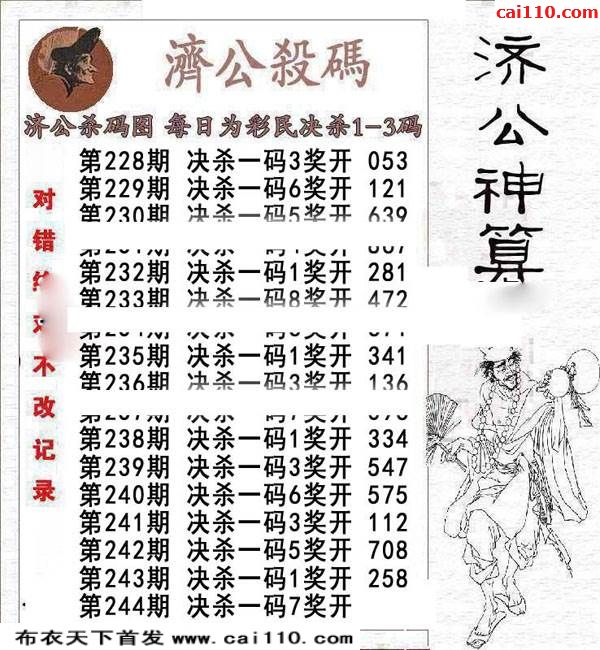 cai110.com
濟公殺碼
济公杀码图 每日为彩民决杀1-3码
第228期 决杀一码3奖开 053
第229期 决杀一码6奖开 121
第230期 决杀一码5奖开 639
第232期 决杀一码1奖开 281
第233期 决杀一码8奖开 472
第235期 决杀一码1奖开 341
第236期 决杀一码3奖开 136
第238期 决杀一码1奖开 334
第239期 决杀一码3奖开 547
第240期 决杀一码6奖开 575
第241期 决杀一码3奖开 112
第242期 决杀一码5奖开 708
第243期 决杀一码1奖开 258
第244期 决杀一码7奖开
对错
不改记录
济公神算
布衣天下首发 www.cai110.com